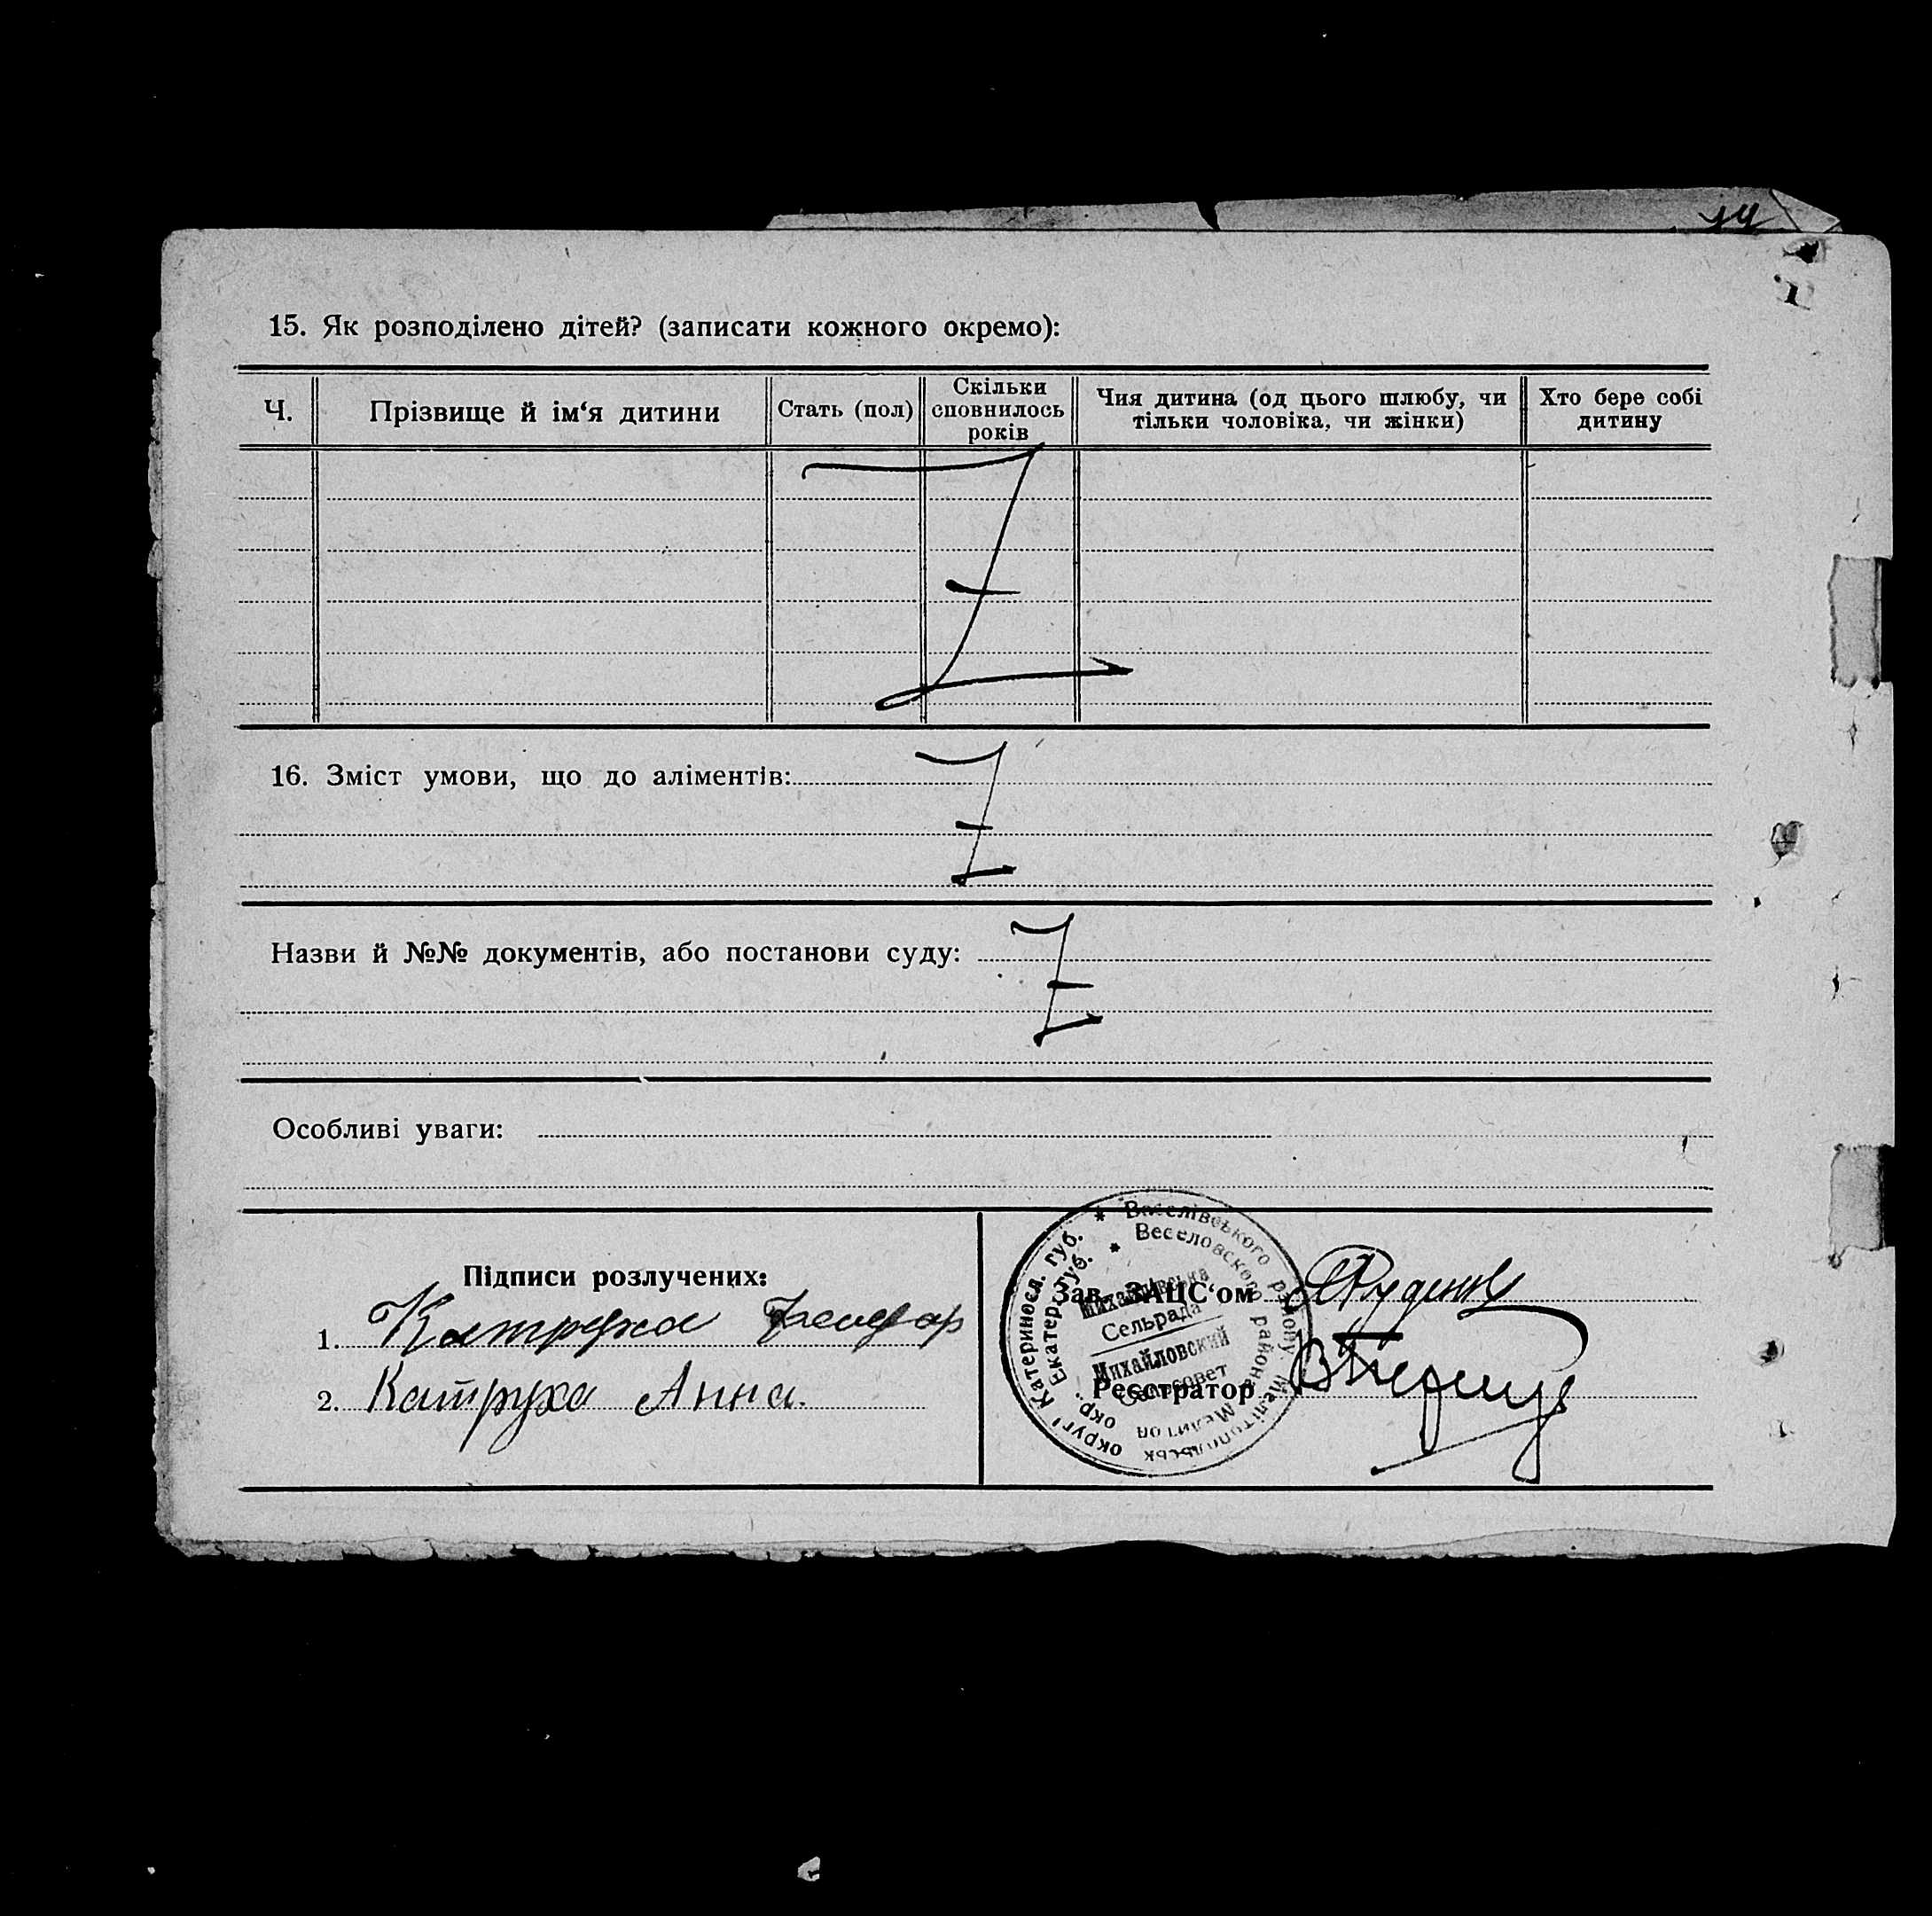 14
15. Як розподілено дітей? (записати кожного окремо):
Ч.
Прізвище й ім‘я дитини
Стать (пол)
Скільки
сповнилось
років
Чия дитина (од цього шлюбу, чи
тільки чоловіка, чи жінки)
Хто бере собі
дитину
Z
16. Зміст умови, що до аліментів:
Z
Назви й №№ документів, або постанови суду:
Z
Особливі уваги:
Підписи розлучених:
1. Катруха
2. Катруха Анна.
* Веселівського району. Мелітопольськ округ. Катериносл. губ.
* Веселовского района Мелитоп окр. Екатер. губ.
Михайлівська
Сельрада
Михайловский
Сельсовет
Зав. ЗАЦС‘ом Руденко
Реєстратор